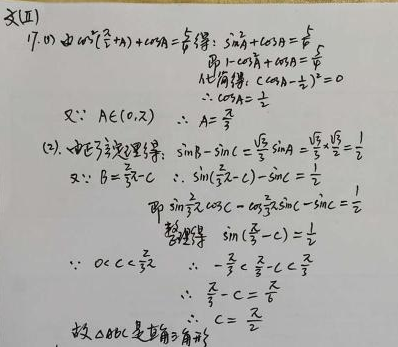 文(II)
17.(1) 由cos²(π/2+A)+cosA=5/4得: sin²A+cosA=5/4
即 1-cos²A+cosA=5/4
化简得: (cosA-1/2)²=0
∴ cosA=1/2
又∵ A∈(0,π) ∴ A=π/3
(2). 由正弦定理得: sinB-sinC=√3/3 sinA=√3/3×√3/2=1/2
又∵ B=2/3π-C ∴ sin(2/3π-C)-sinC=1/2
即 sin2/3πcosC-cos2/3πsinC-sinC=1/2
整理得 sin(π/3-C)=1/2
∵ 0<C<2/3π ∴ -π/3<π/3-C<π/3
∴ π/3-C=π/6
∴ C=π/2
故△ABC是直角三角形